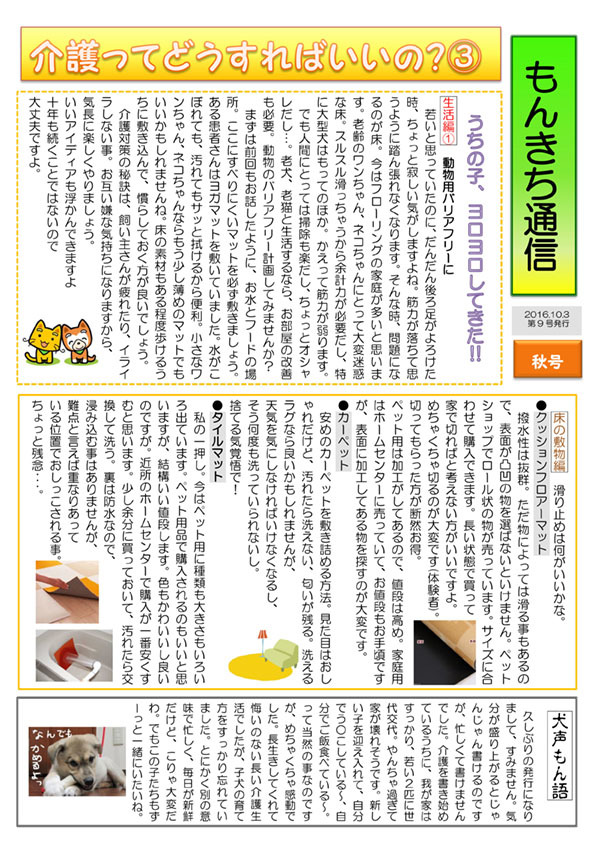 介護ってどうすればいいの?③
もんきち通信
2016.10.3
第9号発行
秋号
うちの子、ヨロヨロしてきた!!
生活編① 動物用バリアフリーに
若いと思っていたのに、だんだん後ろ足がよろけた
時、ちょっと寂しい気がしますよね。筋力が落ちて思
うように踏ん張れなくなります。そんな時、問題にな
るのが床。今はフローリングの家庭が多いと思いま
す。老齢のワンちゃん、ネコちゃんにとって大変迷惑
な床。スルスル滑っちゃうから余計力が必要だし、特
に大型犬はもってのほか。かえって筋力が弱ります。
でも人間にとっては掃除も楽だし、ちょっとオシャ
レだし…老犬、老猫と生活するなら、お部屋の改善
も必要。動物のバリアフリー計画してみませんか?
まずは前回もお話したように、お水とフードの場
所。ここにすべりにくいマットを必ず敷きましょう。
ある患者さんはヨガマットを敷いていました。水がこ
ぼれても、汚れてもサッと拭けるから便利。小さなワ
ンちゃん、ネコちゃんならもう少し薄めのマットでも
いいかもしれませんね。床の素材もある程度歩けるう
ちに敷き込んで、慣らしておく方が良いでしょう。
介護対策の秘訣は、飼い主さんが疲れたり、イライ
ラしない事。お互い嫌な気持ちになりますから、
気長に楽しくやりましょう。
いいアイディアも浮かんできますよ
十年も続くことではないので
大丈夫ですよ。
床の敷物編 滑り止めは何がいいかな。
●クッションフロアーマット
撥水性は抜群。ただ物によっては滑る事もあるの
で、表面が凸凹の物を選ばないといけません。ペット
ショップでロール状の物が売っています。サイズに合
わせて購入できます。長い状態で買って
家で切ればと考えない方がいいですよ。
めちゃくちゃ切るのが大変です(体験者)。
切ってもらった方が断然お得。
ペット用は加工がしてあるので、値段は高め。家庭用
はホームセンターに売っていて、お値段もお手頃です
が、表面に加工してある物を探すのが大変です。
●カーペット
安めのカーペットを敷き詰める方法。見た目はおし
ゃれだけど、汚れたら洗えない、匂いが残る。洗える
ラグなら良いかもしれませんが、
天気を気にしなければいけなくなるし、
そう何度も洗っていられないし。
捨てる気覚悟で!
●タイルマット
私の一押し。今はペット用に種類も大きさもいろい
ろ出ています。ペット用品で購入されるのもいいと思
いますが、結構いい値段します。色もかわいいし良い
のですが。近所のホームセンターで購入が一番安くす
むと思います。少し余分に買っておいて、汚れたら交
換して洗う。裏は防水なので、
浸み込む事はありませんが、
難点と言えば重なりあって
いる位置でおしっこされる事。
ちょっと残念…。
犬声もん語
久しぶりの発行になり
まして、すみません。気
分が盛り上がるとじゃ
んじゃん書けるのです
が、忙しくて書けません
でした。介護を書き始め
ているうちに、我が家は
すっかり、若い2匹に世
代交代。やんちゃ過ぎて
家が壊れそうです。新し
い子を迎え入れて、自分
でう〇にしている〜、自
分でご飯食べている〜。
って当然の事なのです
が、めちゃくちゃ感動で
した。長生きしてくれて
悔いのない長い介護生
活でしたが、子犬の育て
方をすっかり忘れてい
ました。とにかく別の意
味で忙しく、毎日が新鮮
だけど、こりゃ大変だ
わ。でもこの子たちもず
ーっと一緒にいたいね。
なんでも
かめるよっ